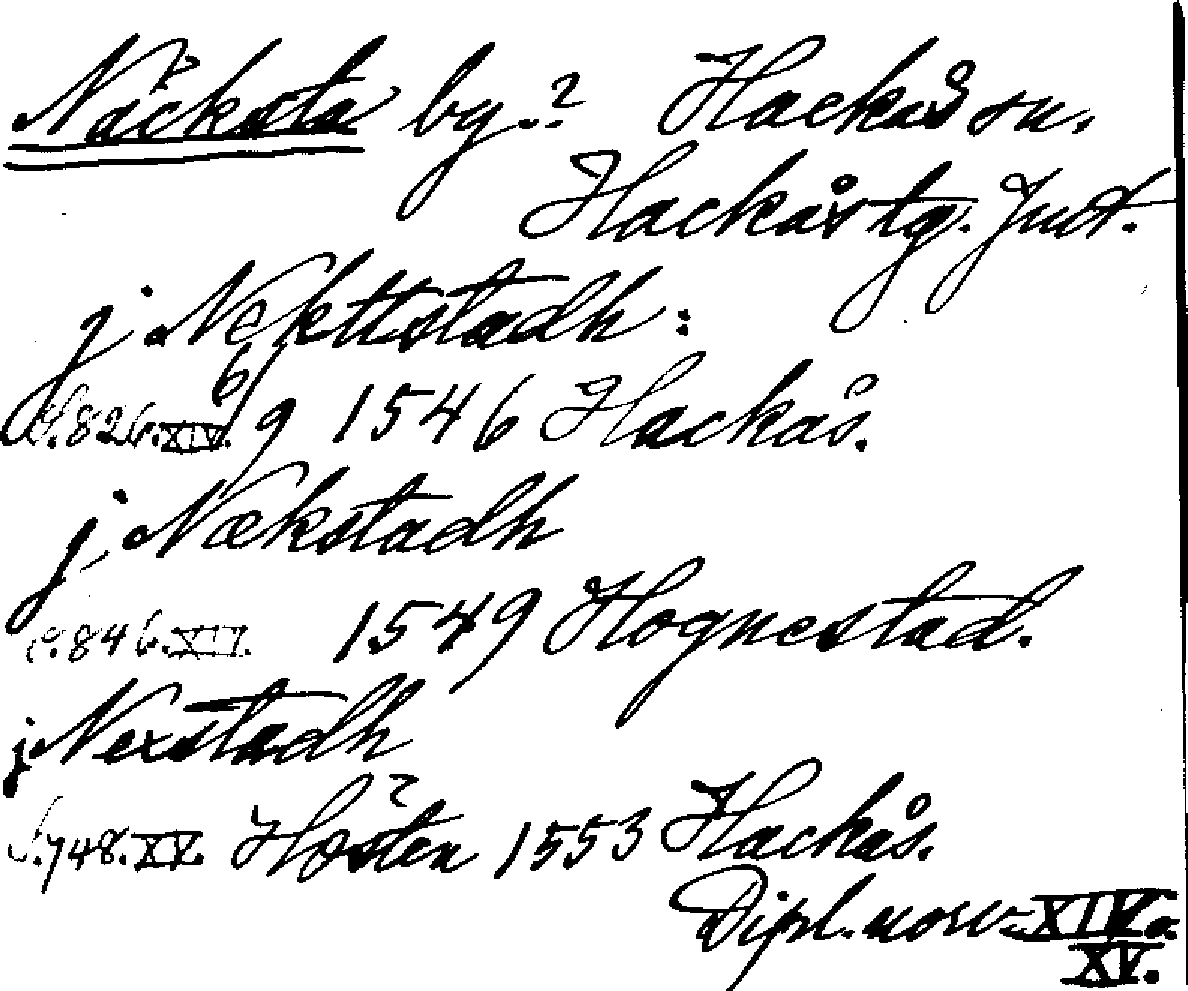 Näcksta bg.? Hackås sn.
Hackås tg. Jmt.
j Nekttstadh:
S. 826. XIV. 6/9 1546 Hackås.
j Nækstadh
S. 846. XIV. 1549 Hognestad.
j Nexstadh
S. 748. XV. Hösten? 1553 Hackås.
Dipl. norv. XIV o.
XV.